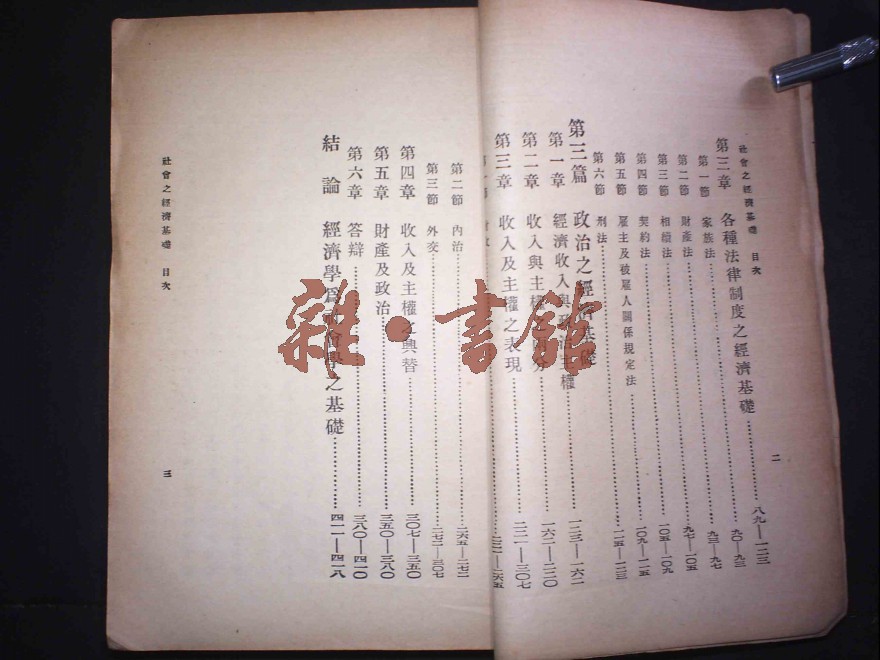 社會之經濟基礎 目次
二
第三章 各種法律制度之經濟基礎 八九——一二三
第一節 家族法 九〇——九三
第二節 財產法 九三——九七
第三節 相續法 九七——一〇五
第四節 契約法 一〇五——一〇九
第五節 雇主及被雇人關係規定法 一〇九——一一五
第六節 刑法 一一五——一二三
第三篇 政治之經濟基礎
第一章 經濟收入與政治主權 一二三——一六二
第二章 收入與主權 分 一六二——二二〇
第三章 收入及主權之表現 二二一——三〇七
節 二二一——二六五
第二節 內治 二六五——二七二
第三節 外交 二七二——三〇七
第四章 收入及主權之興替 三〇七——三五〇
第五章 財產及政治 三五〇——三八〇
第六章 答辯 三八〇——四一〇
結論 經濟學爲社會學之基礎 四一一——四一八
社會之經濟基礎 目次
三
雜·書館